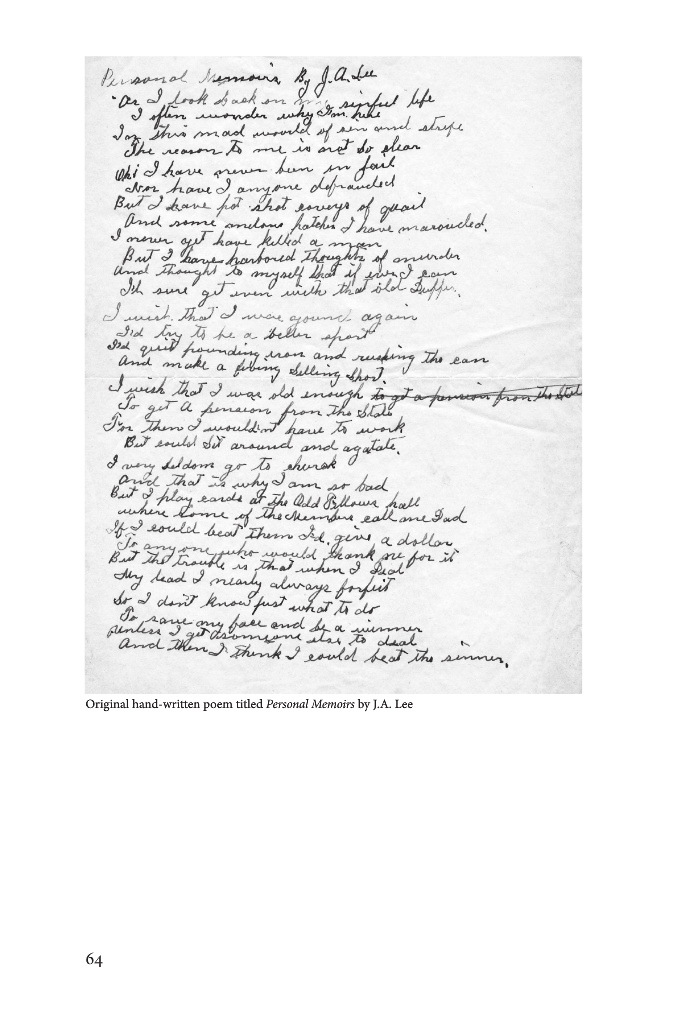 Personal Memoirs, By J.A. Lee
"As I look back on my sinful life
I often wonder why I'm here
In this mad world of sin and strife
The reason to me is not so clear
I have never been in jail
Nor have I anyone defrauded
But I have pot shot coveys of quail
And some melons patches I have marouded.
I never yet have killed a man
But I have harbored thoughts of murder
And thought to myself that if ever I can
I'll sure get even with that old Duffer.
I wish that I was young again
I'd try to be a better sport
I'd quit pounding iron and rushing the can
And make a living selling short.
I wish that I was old enough to get a pension from the State
To get A pension from the State
For then I wouldn't have to work
But could sit around and agatate.
I very seldom go to church
And that is why I am so bad
But I play cards at the Odd Fellows hall
where some of the Members call me Dad
If I could beat them I'd. give a dollar
To anyone who would thank me for it
But the trouble is that when I Deal
My lead I nearly always forfeit
So I don't know just what to do
To save my face and be a winner
unless I get someone else to deal
And then I think I could beat the sinner.
Original hand-written poem titled Personal Memoirs by J.A. Lee
64